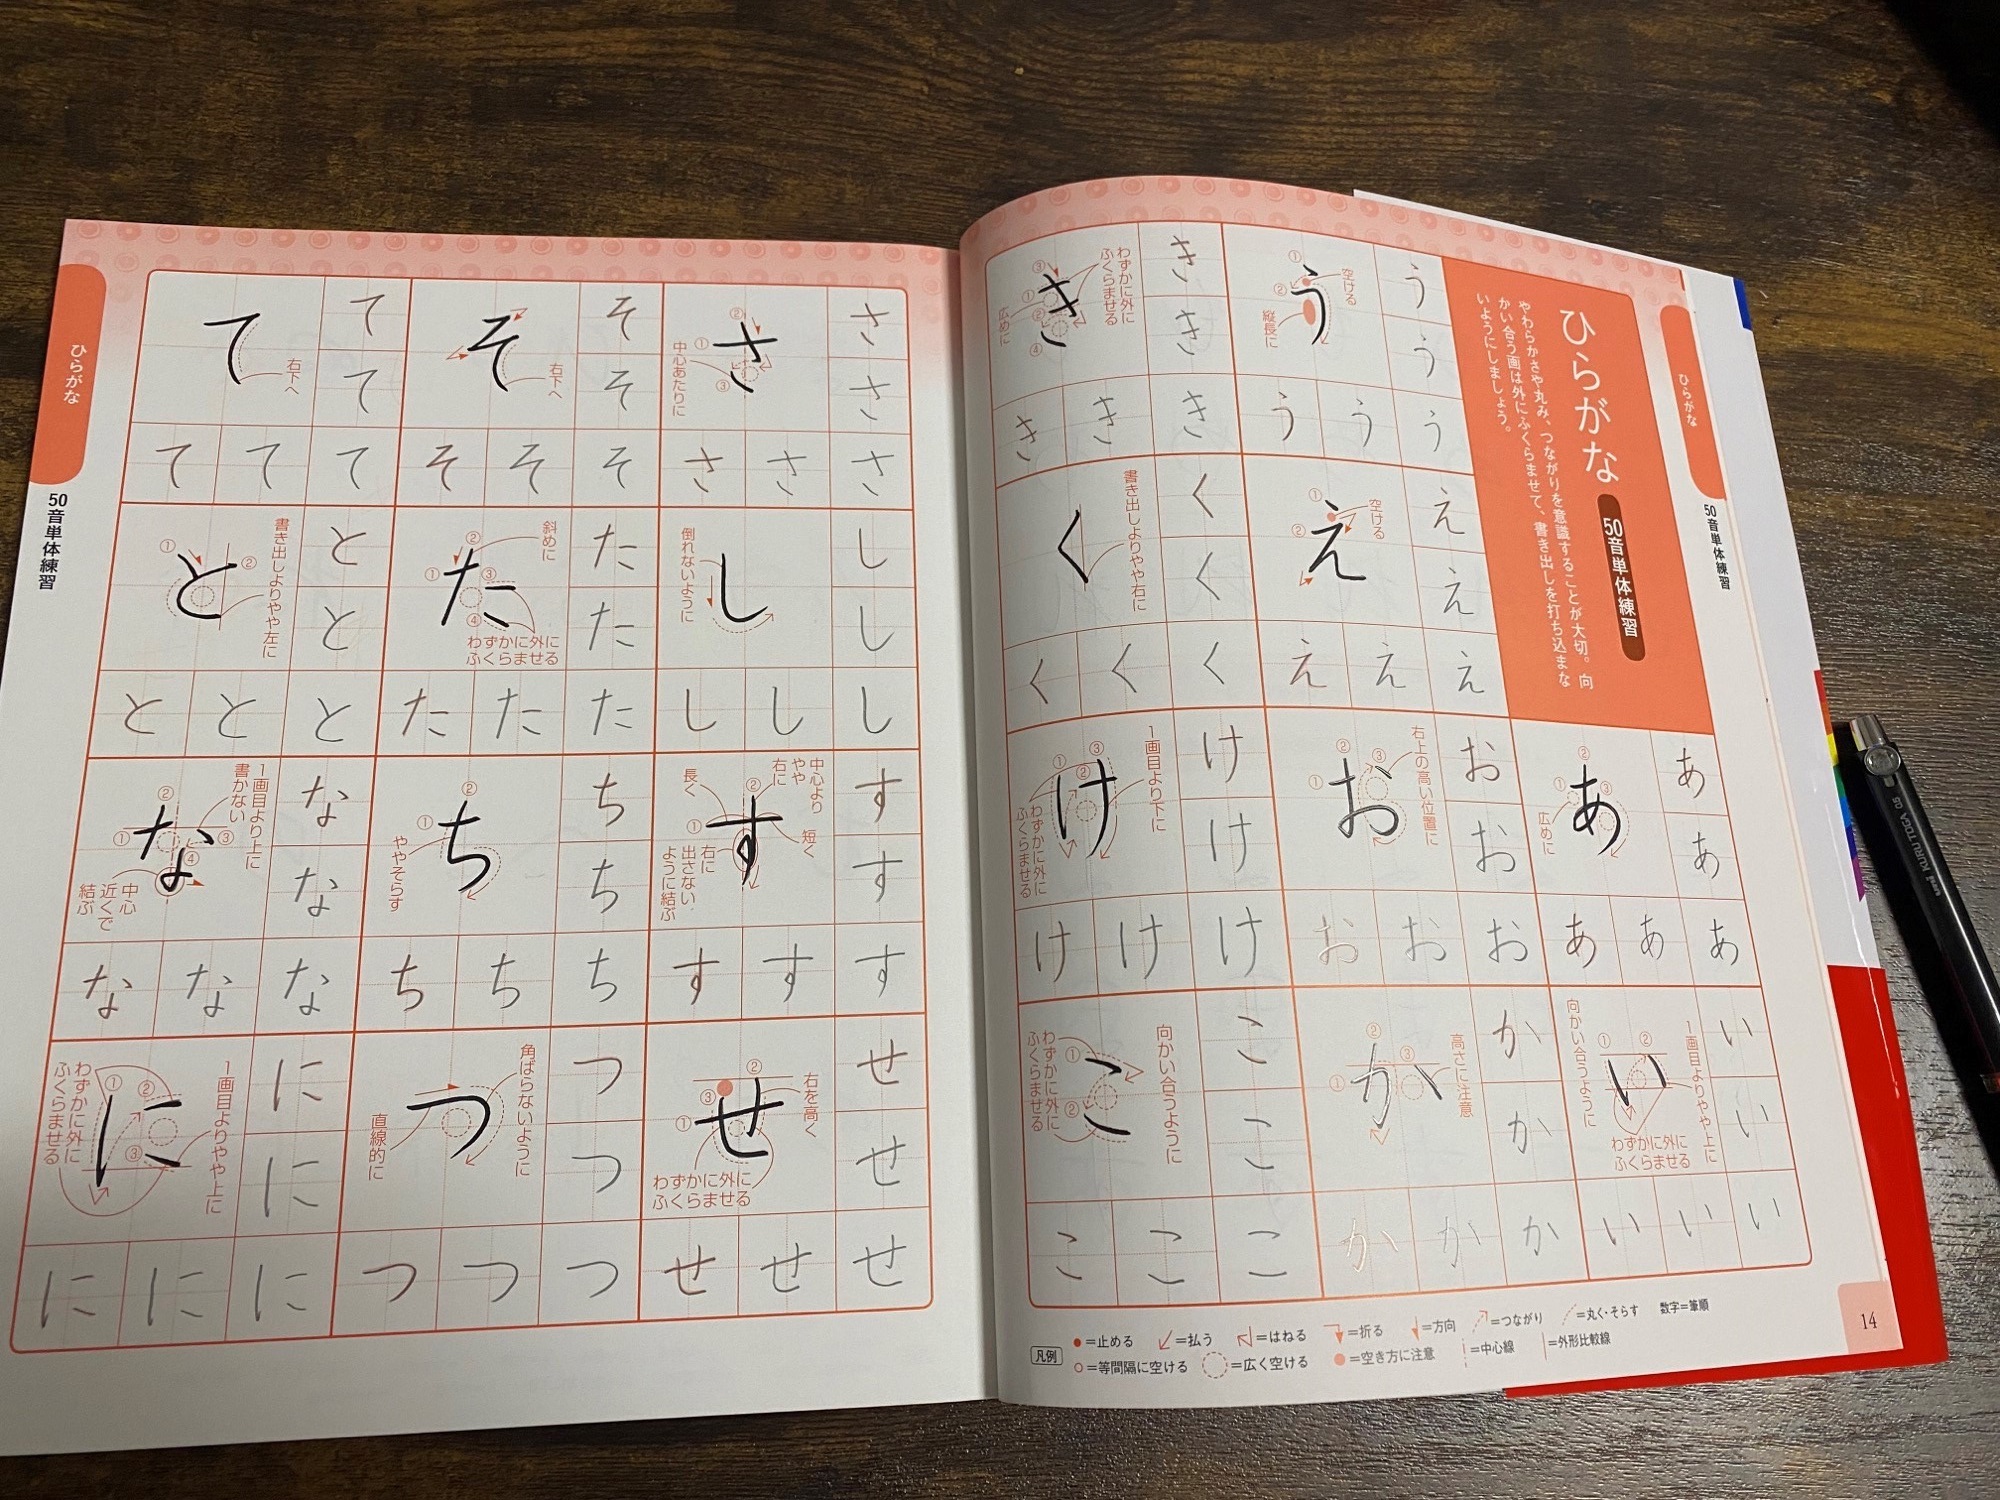 ひらがな
50音単体練習
ひらがな
50音単体練習
やわらかさや丸み、つながりを意識することが大切。向
かい合う画は外にふくらませて、書き出しを打ち込まな
いようにしましょう。
あ
① ② ③
広めに
あ あ
あ あ あ
い
① ②
向かい合うように
1画目よりやや上に
わずかに外に
ふくらませる
い い
い い い
う
① ②
空ける
縦長に
う う
う う う
え
① ②
空ける
え え
え え え
お
① ② ③
右上の高い位置に
お お
お お お
か
① ② ③
高さに注意
か か
か か か
き
① ② ③ ④
わずかに外に
ふくらませる
広めに
き き
き き き
く
書き出しよりやや右に
く く
く く く
け
① ② ③
1画目より下に
わずかに外に
ふくらませる
け け
け け け
こ
① ②
向かい合うように
わずかに外に
ふくらませる
こ こ
こ こ こ
凡例
=止める
=払う
=はねる
=折る
=方向
=つながり
=丸く・そらす
数字=筆順
=等間隔に空ける
=広く空ける
=空き方に注意
=中心線
=外形比較線
14
さ
① ② ③
中心あたりに
さ さ
さ さ さ
し
倒れないように
し し
し し し
す
① ②
中心より
やや
右に
長く
短く
右に
出さない
ように結ぶ
す す
す す す
せ
① ② ③
右を高く
わずかに外に
ふくらませる
せ せ
せ せ せ
そ
右下へ
そ そ
そ そ そ
た
① ② ③ ④
斜めに
わずかに外に
ふくらませる
た た
た た た
ち
① ②
ややそらす
ち ち
ち ち ち
つ
角ばらないように
直線的に
つ つ
つ つ つ
て
右下へ
て て
て て て
と
① ②
書き出しよりやや左に
と と
と と と
な
① ② ③ ④
1画目より上に
書かない
中心
近くで
結ぶ
な な
な な な
に
① ② ③
1画目よりやや上に
わずかに外に
ふくらませる
に に
に に に
ひらがな
50音単体練習
uni KURU TOGA 0.5